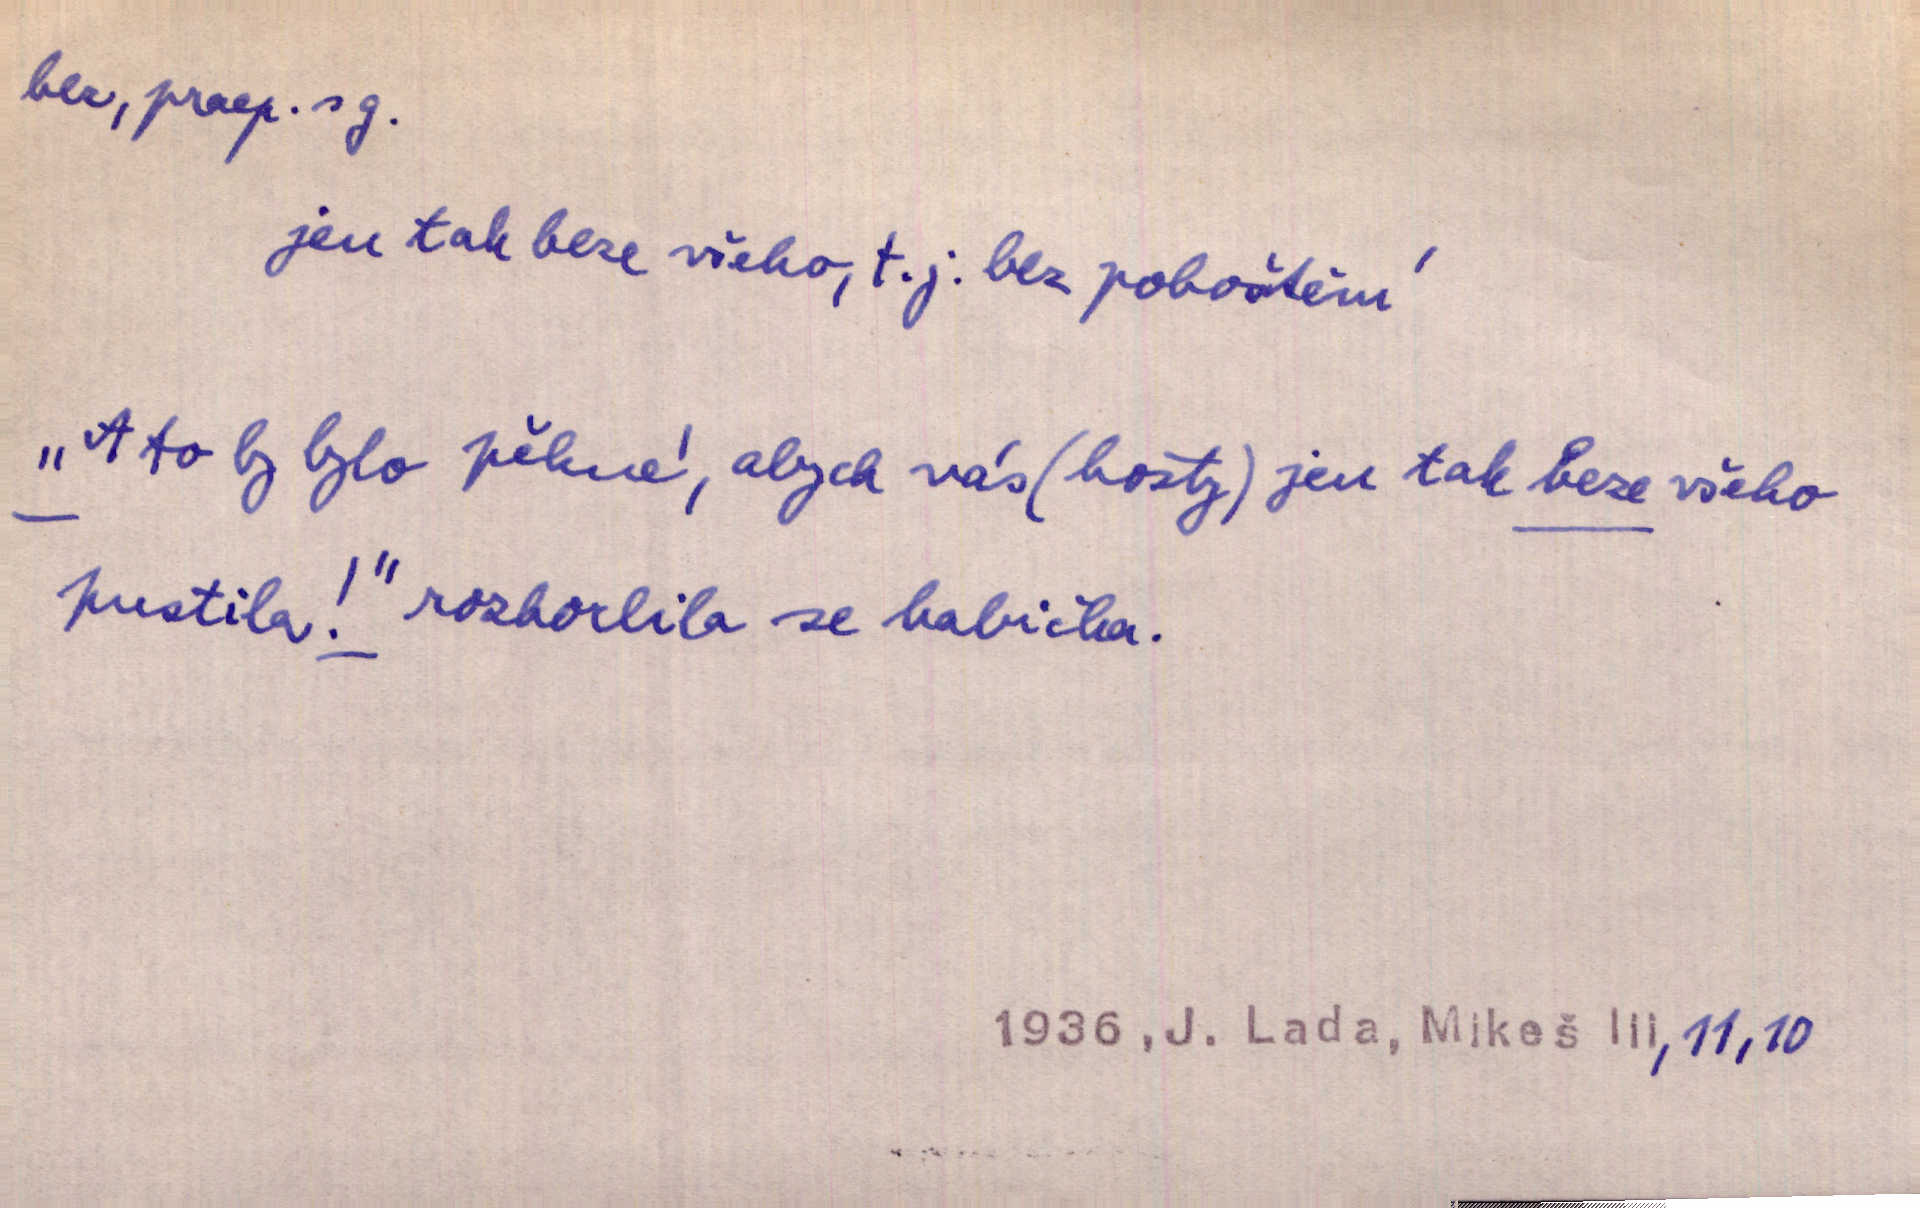 bez, praep. s g.
jen tak beze všeho, t. j. bez pohoštění
„A to by bylo pěkné, abych vás (hosty) jen tak beze všeho
pustila!" rozhorlila se babička.
1936, J. Lada, Mikeš III, 11, 10